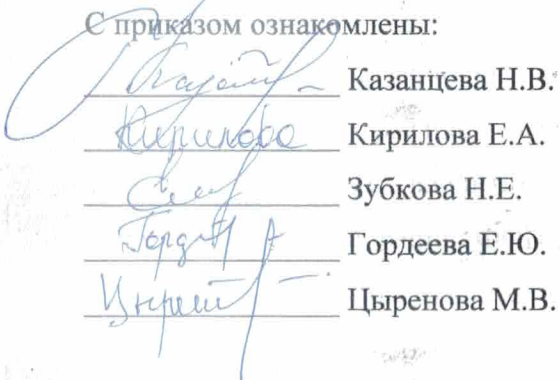 С приказом ознакомлены:
Казанцева Н.В.
Кирилова Кирилова Е.А.
Зубкова Н.Е.
Гордеева Е.Ю.
Цыренова М.В.